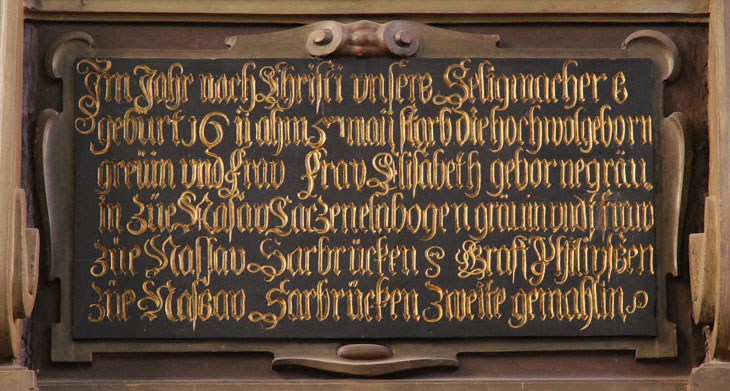 Im Jahr nach Christi vnsers Seligmachers
geburt 16 ii ahm 5 maij starb die hochwolgeborn
greuin vnd Frav Frav Elisabeth gebor ne gräu.
in züe Nasav Sarzenelnbogen gräuin vnd frav
züe Nassav Sarbrücken s Graff Philipssen
züe Nassav Sarbrücken zweite gemahlin